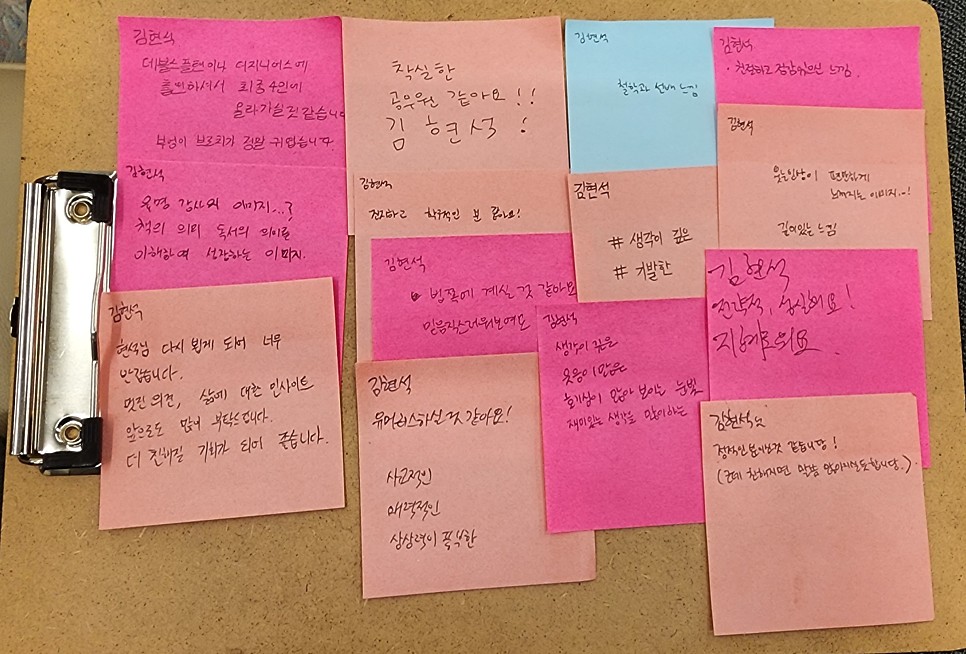 김현석
데블스플랜이나 더지니어스에
출연하셔서 최종 4인에
올라가실 것 같습니다
부엉이 브로치가 정말 귀엽습니다.
착실한
공무원 같아요!!
김현석!
김현석
철학과 선배 느낌
김현석
· 친절하고 젠감있으신 느낌.
김현석
웃는인상이 편안하게
느껴지는 이미지..!
깊이있는 느낌
김현석
유명 강사의 이미지...?
책의 의미 독서의 의미를
이해하여 설장하는 이미지.
김현석
진지하고 학구적인 분 같아요!
김현석
# 생각이 깊은
# 기발한
김현석
법쪽에 계실 것 같아요
믿음직스러워보여요
김현석
연각적, 성실해요!
지혜로워요
김현석
현석님 다시 뵙게 되어 너무
반갑습니다.
멋진 의견, 삶에 대한 인사이트
앞으로도 많이 부탁드립니다.
더 친해질 기회가 되어 좋습니다.
김현석
유머러스하신 것 같아요!
사교적인
매력적인
상상력이 풍부한
김현석
생각이 깊은
웃음이 많은
호기심이 많아 보이는 눈빛
재미있는 생각을 많이 하는
김현석님
정적인 분이신것 같습니당!
(근데 친해지면 말씀 많아지실듯합니다.)